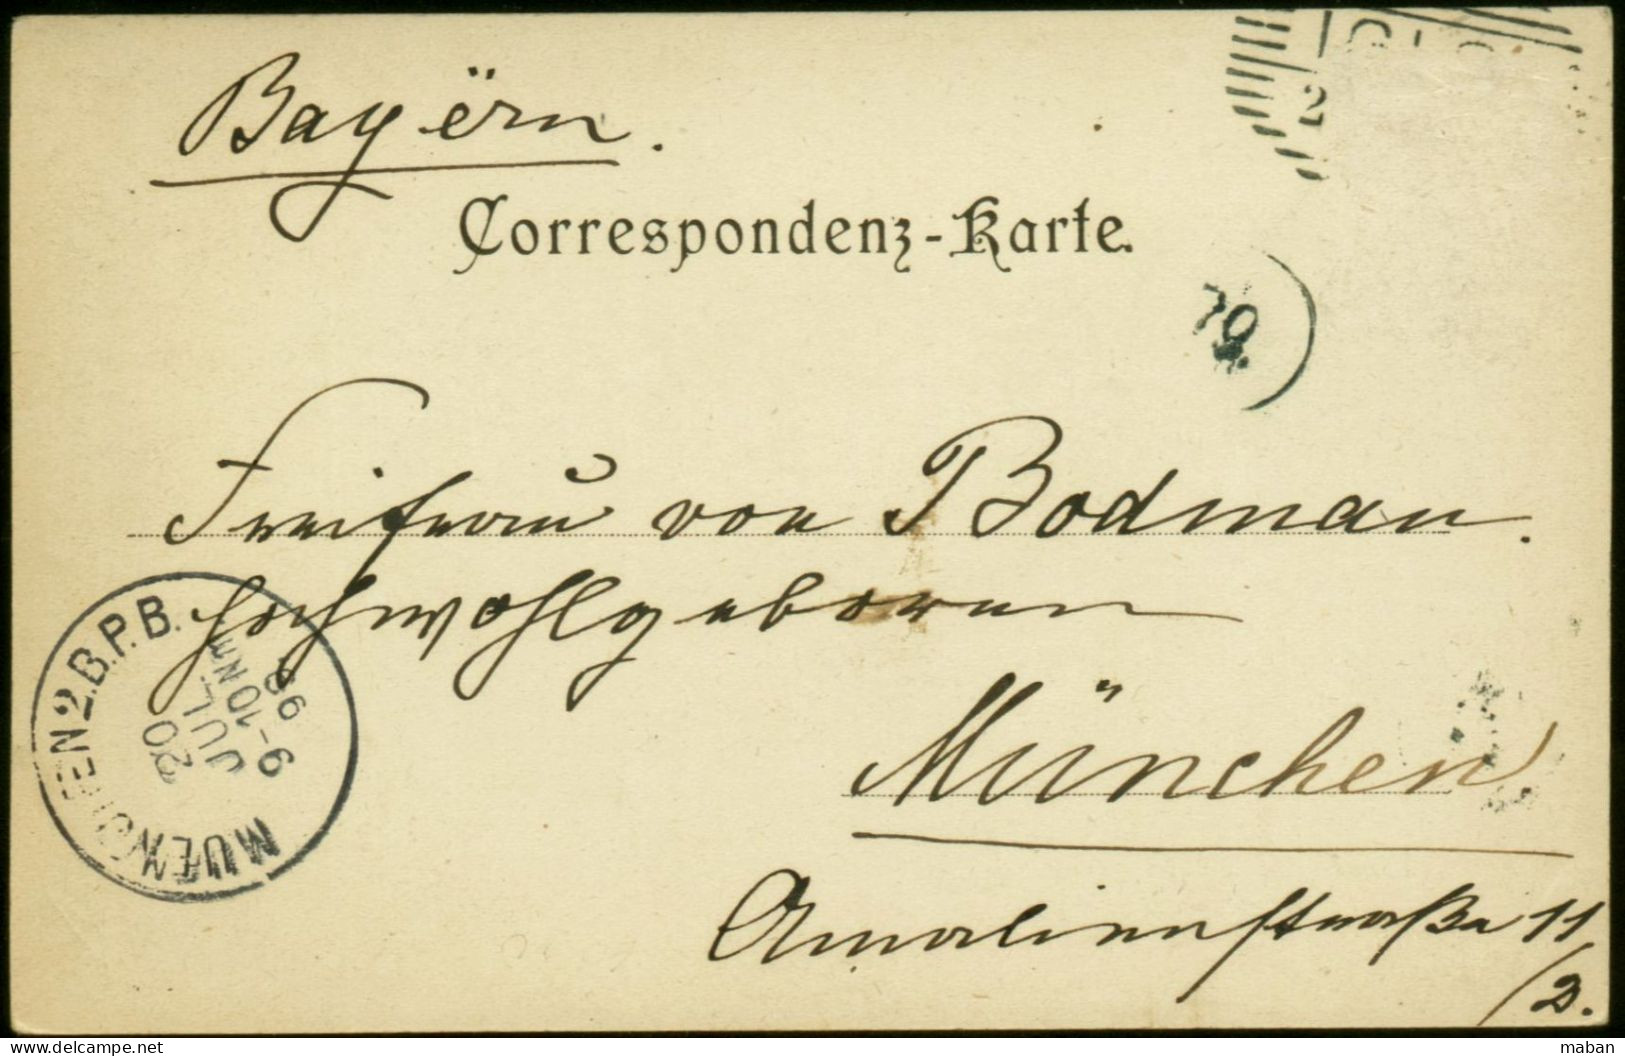 Bayërn.
Correspondenz-Karte.
70
Freifrau von Bodman.
Hochwohlgeboren
München
Amalienstraße 11
/2.
MUENCHEN 2.B.P.B.
20
JUL
9-10 Nm
99
maban